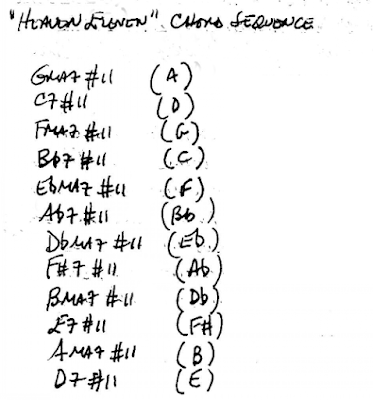 "HEAVEN ELEVEN" CHORD SEQUENCE
GMA7 #11 (A)
C7 #11 (D)
FMA7 #11 (G)
Bb7 #11 (C)
EbMA7 #11 (F)
Ab7 #11 (Bb)
DbMA7 #11 (Eb)
F#7 #11 (Ab)
BMA7 #11 (Db)
E7 #11 (F#)
AMA7 #11 (B)
D7 #11 (E)